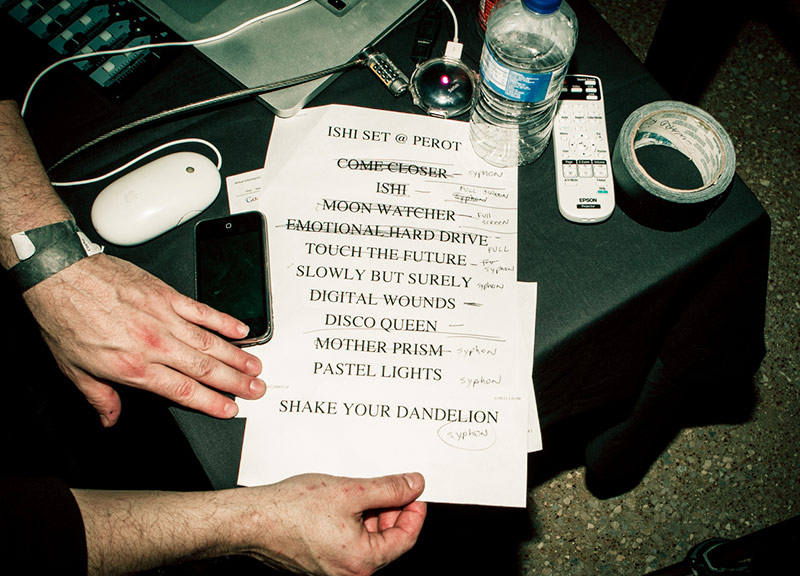 ISHI SET @ PEROT
COME CLOSER — SYPHON
ISHI — FULL SCREEN
Syphon
MOON WATCHER — FULL SCREEN
EMOTIONAL HARD DRIVE FULL
TOUCH THE FUTURE — SYPHON
SLOWLY BUT SURELY SYPHON
DIGITAL WOUNDS —
DISCO QUEEN —
MOTHER PRISM — SYPHON
PASTEL LIGHTS SYPHON
SHAKE YOUR DANDELION
SYPHON
EPSON
Projector